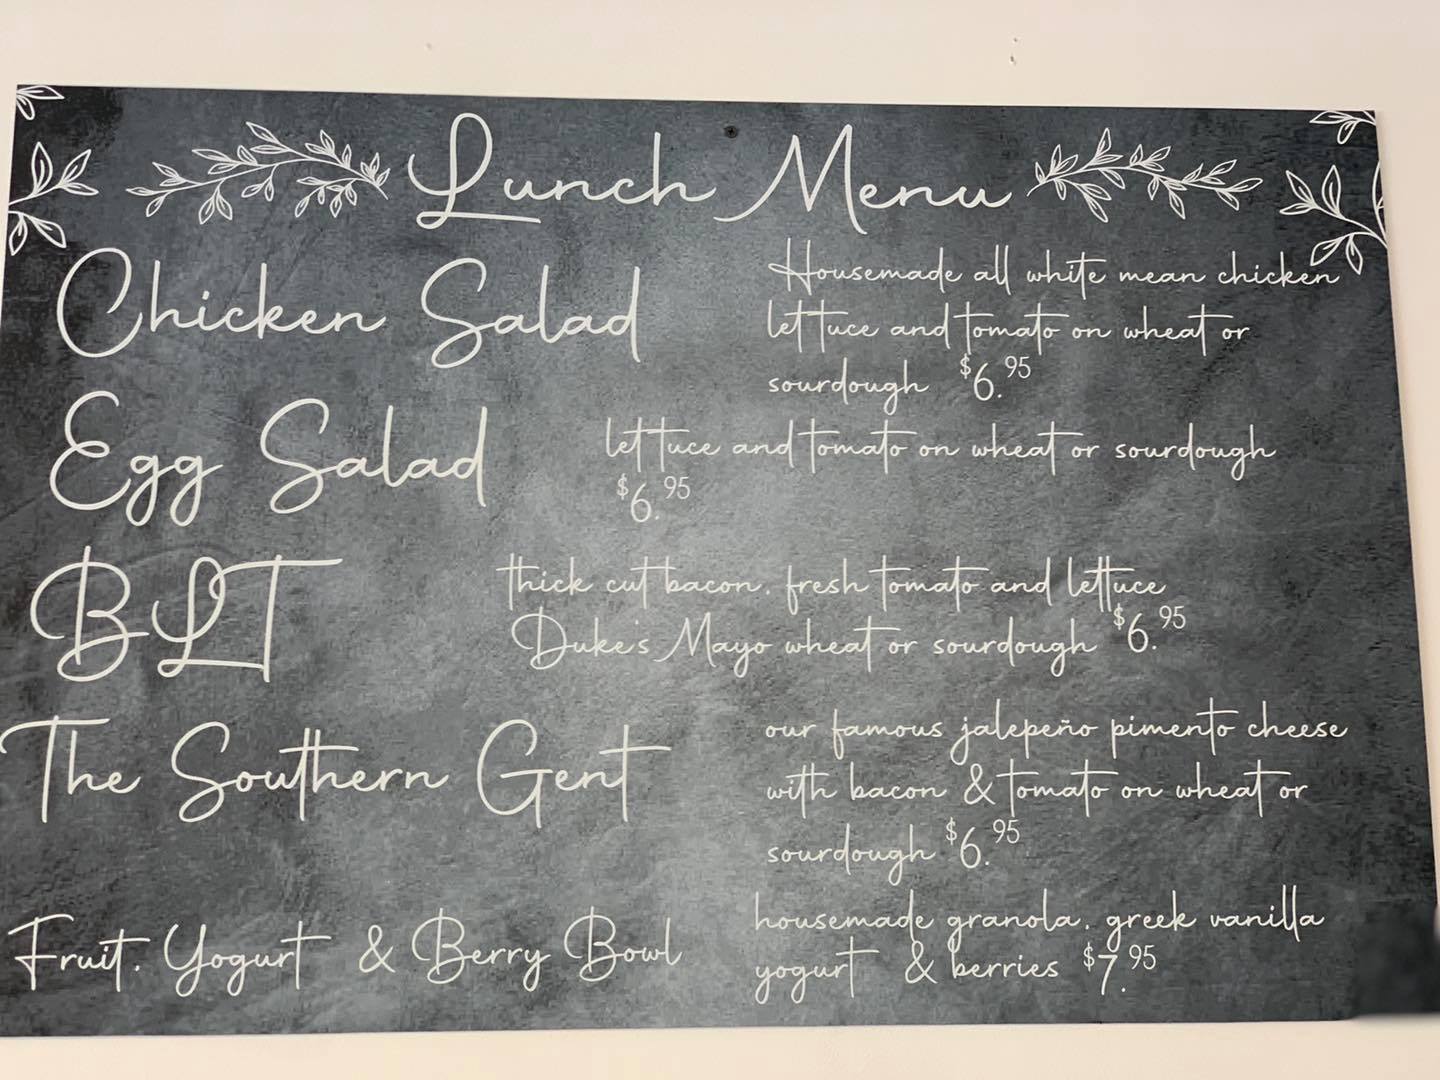 Lunch Menu
Chicken Salad
Housemade all white mean chicken
lettuce and tomato on wheat or
sourdough $6.95
Egg Salad
lettuce and tomato on wheat or sourdough
$6.95
BLT
thick cut bacon, fresh tomato and lettuce
Duke's Mayo wheat or sourdough $6.95
The Southern Gent
our famous jalepeño pimento cheese
with bacon & tomato on wheat or
sourdough $6.95
Fruit, Yogurt & Berry Bowl
housemade granola, greek vanilla
yogurt & berries $7.95